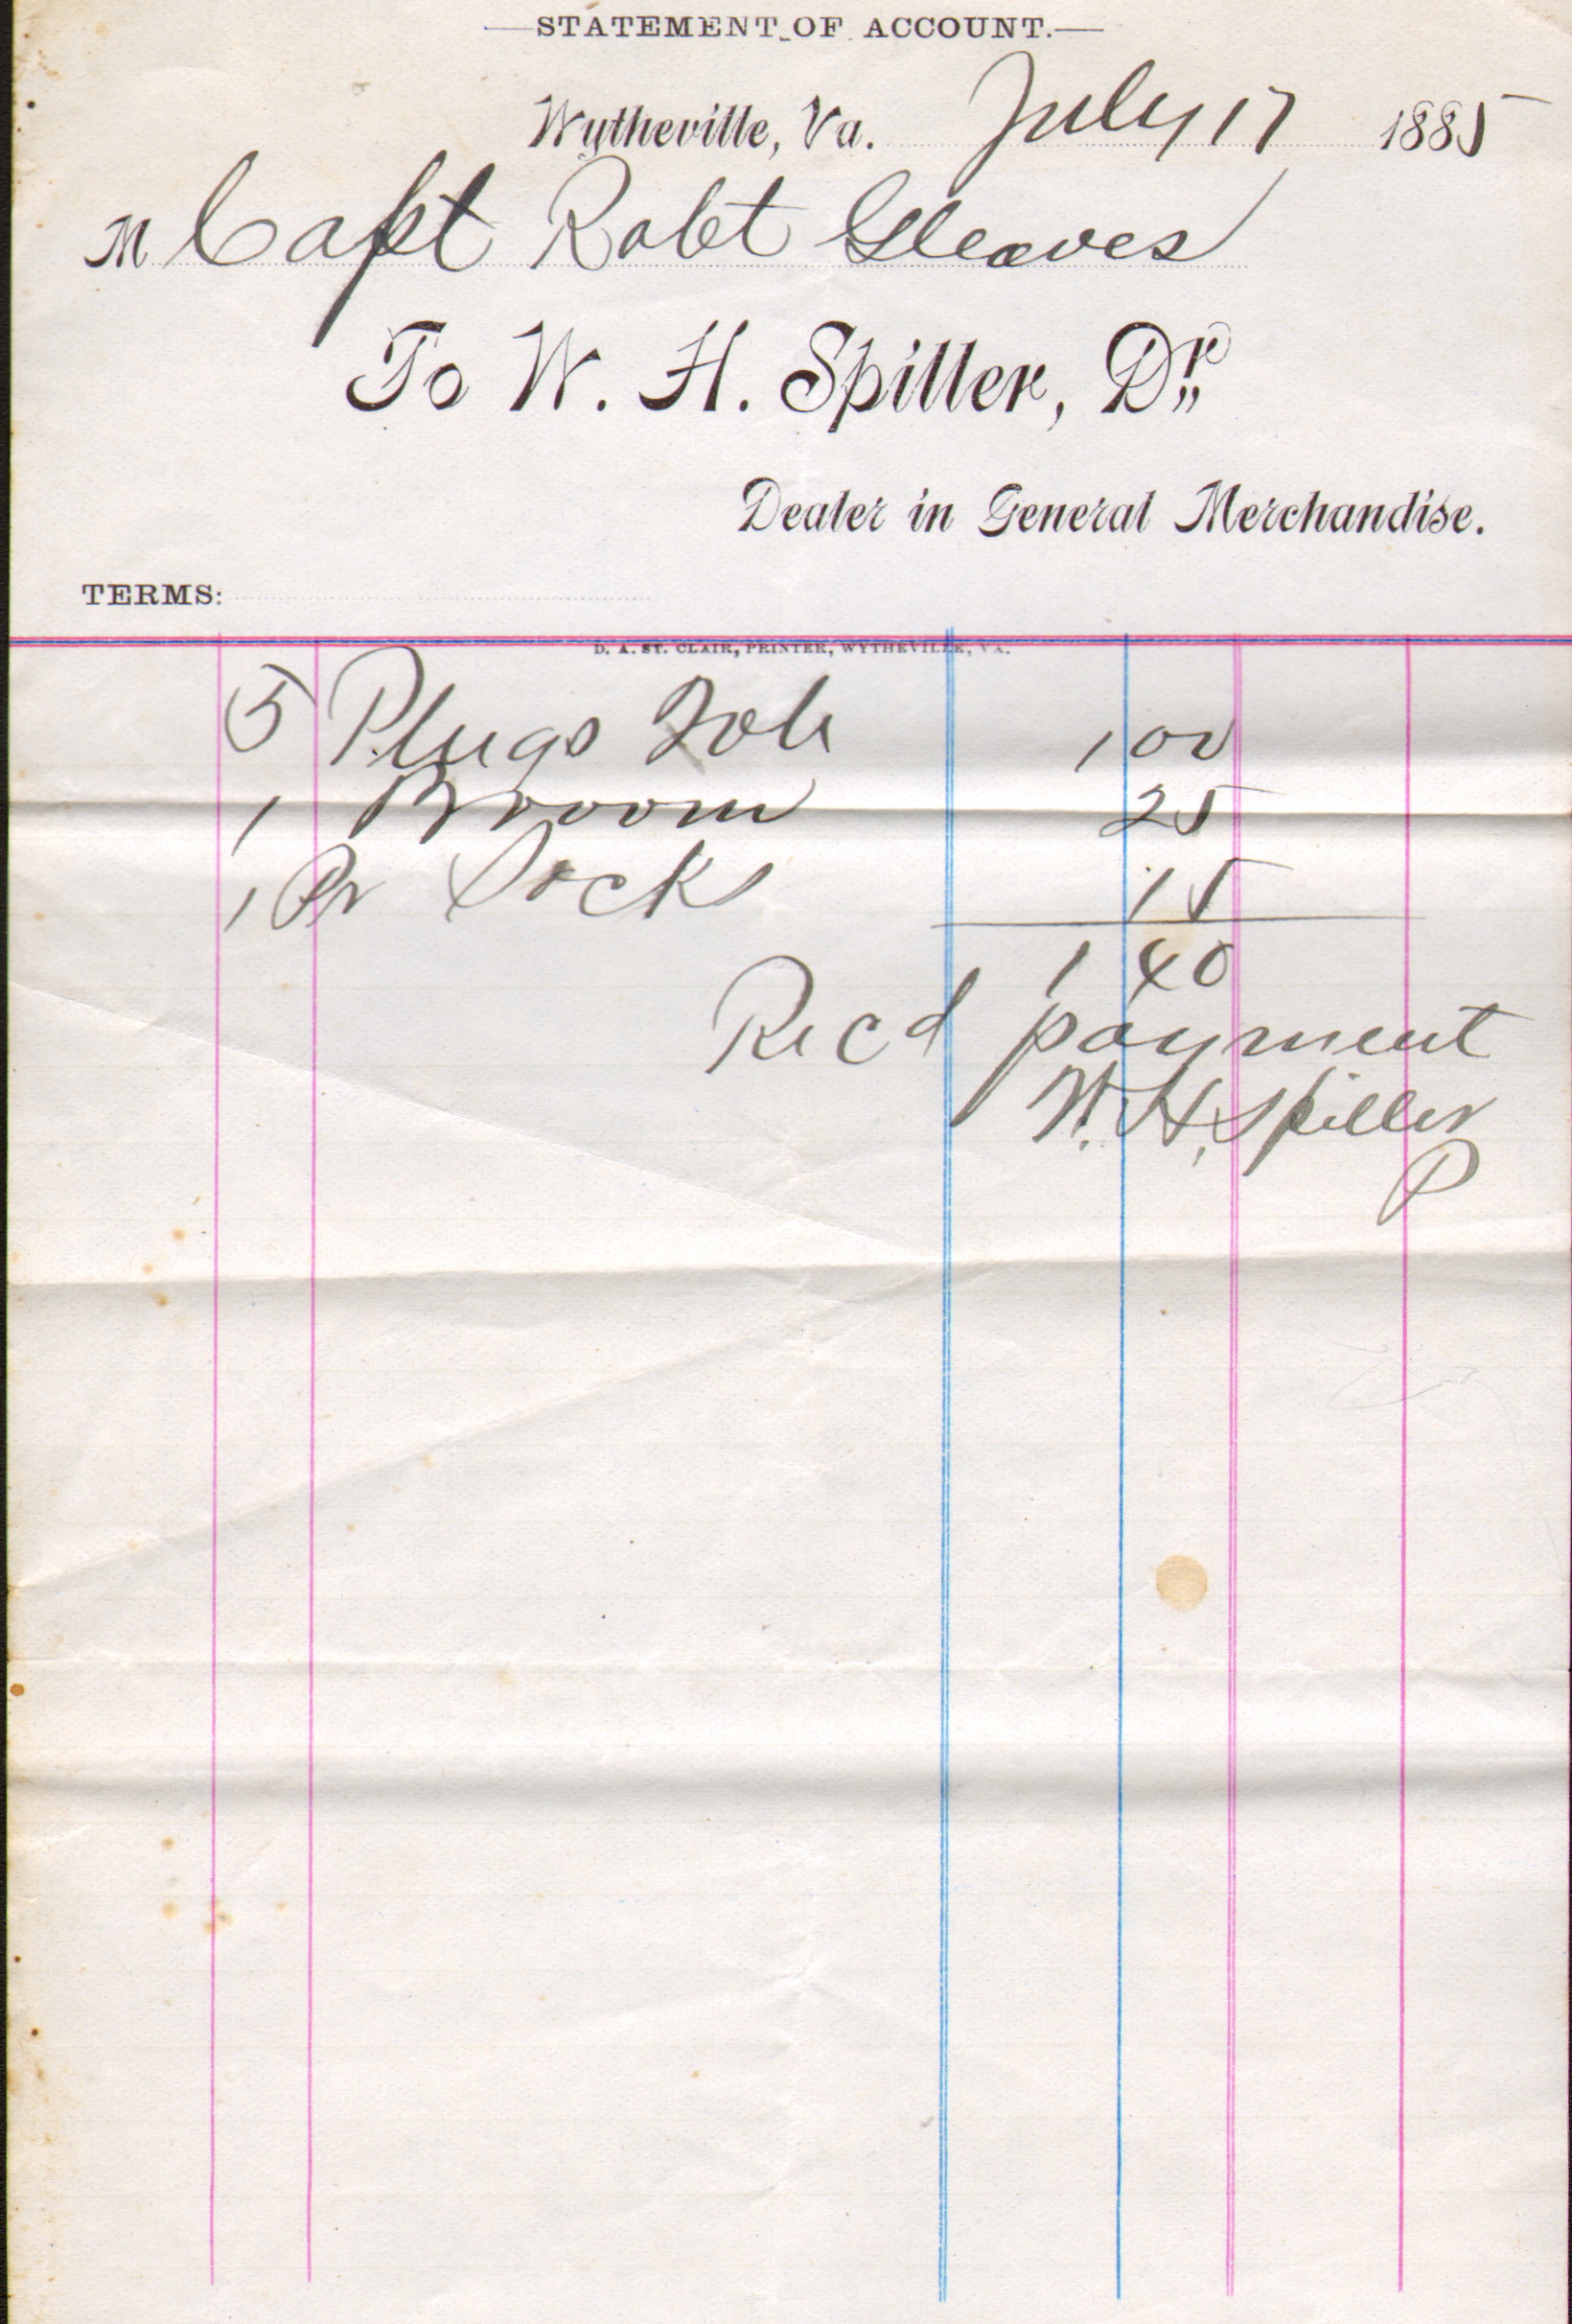 STATEMENT OF ACCOUNT.
Wytheville, Va. July 17 1885
M Capt Robt Gleaves
To W. H. Spiller, Dr.
Dealer in General Merchandise.
TERMS:
D. A. ST. CLAIR, PRINTER, WYTHEVILLE, VA.
5 Plugs Tob 1 00
1 Broom 25
1 Pr Socks 15
1 40
Recd payment
W. H. Spiller
P